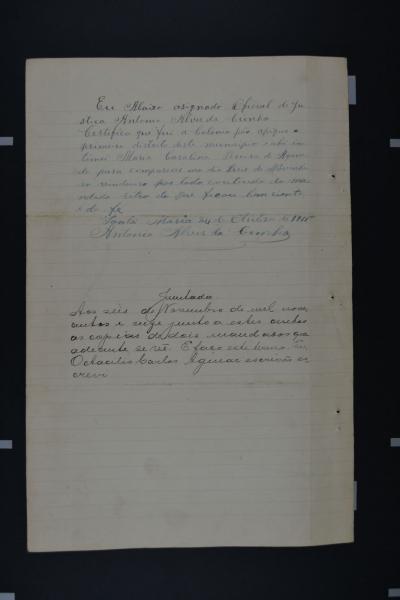 Eu Abaixo asignado Oficial de Jus
tiça Antonio Alves da Cunha
Certifico que fui a Colonia
primeiro districto deste municipio e ahi in
timei Maria Carolina
de para comparecer no dia de Novembro
por todo conteudo do man
dado retro do que ficou bem ciente
e dou fé
Santa Maria 24 de Outubro de 191
Antonio Alves da Cunha
Juntada
Aos seis de Novembro de mil nove
centos e junto a estes autos
as copias de dois mandados que
adeante se vê. E faço este termo. Eu
Octacilio Carlos escrivão es
crevi